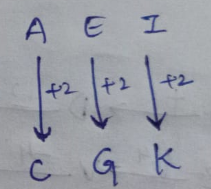 A E I
+2 +2 +2
C G K